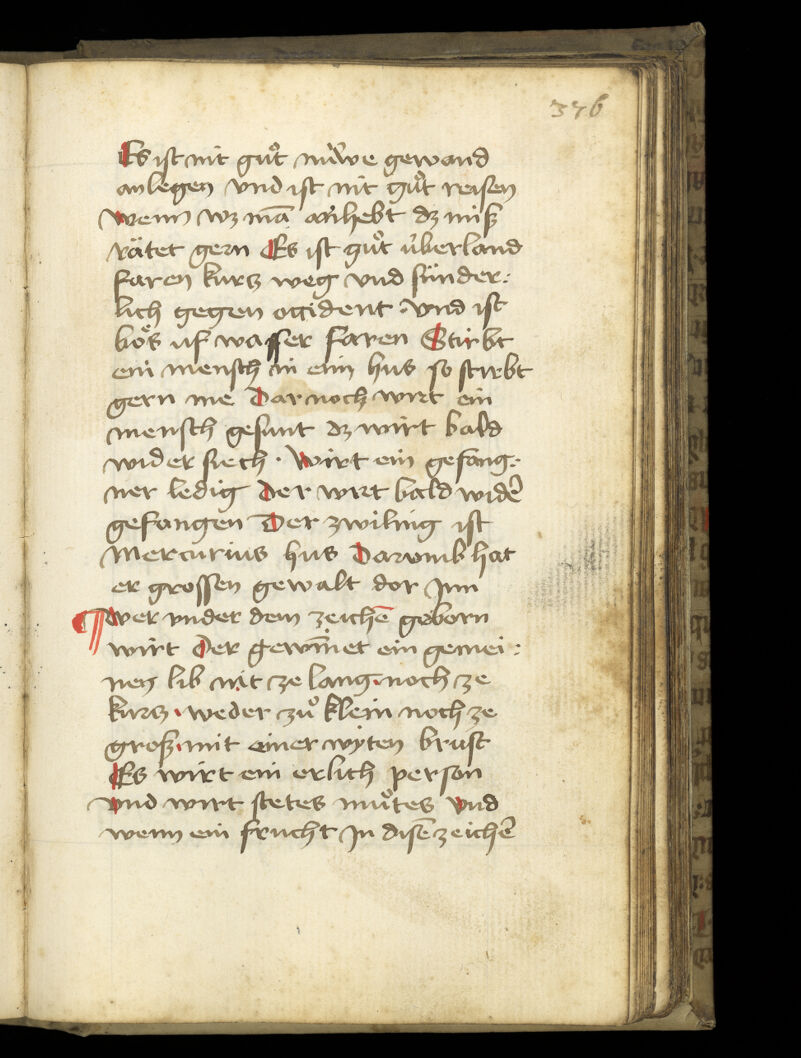 376
Es ist nit guͦt nuͤwe gewand
anlegen vnd ist nit guͦt reisen
wenn wz mā anhebt dz miß
rätet gern Es ist guͦt vͤberland
faren kurtz weg vnd sünder:
lich gegen occident vnd ist
boͤs uf wasser faren Stirbt
ein mensch in eim hus so stirbt
gern me Dar noch wirt ein
mensch gesunt dz wirt bald
wider siech · Wirt ein gefang:
ner ledig Der wirt bald widē
gefangen Der zwiling ist
Mercurius hus Darvmb hat
er grossen gewalt dor Jnn
¶ Wer vnder dem zeichē geborn
wirt Der gewin̄et ein gemei:
nen lib nit ze lang noch ze
kurtz weder zuͦ klein noch ze
groß mit einer wyten brust
Es wirt ein erlich person
vnd wirt stetes muͦtes Vnd
wenn ein frucht Jn disē zeichē